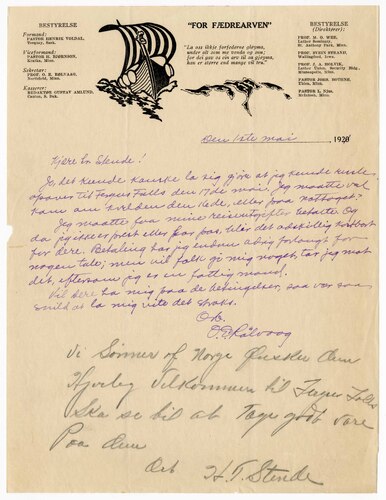 BESTYRELSE
Formand:
PASTOR HENRIK VOLDAL,
Torquay, Sask.
Viceformand:
PASTOR H. BJØRNSON,
Kratka, Minn.
Sekretær:
PROF. O. E. RØLVAAG,
Northfield, Minn.
Kasserer:
REDAKTØR GUSTAV AMLUND,
Canton, S. Dak.
"FOR FÆDREARVEN"
"La oss ikkje forfederne gløyma,
under alt som me venda og snu;
for dei gav oss ein arv til aa gøyma,
han er større end mange vil tru."
BESTYRELSE
(Direktører):
PROF. M. O. WEE,
Luther Seminary,
St. Anthony Park, Minn.
PROF. BYRON
Wallingford, Iowa.
PROF. J. A. HOLVIK,
Luther Union, Security Bldg.
Minneapolis, Minn.
PASTOR JOHN BOTUNE,
Ulen, Minn.
PASTOR L.
Rothsay, Minn.
Den 1ste mai 1920
Kjære hr Stende!
Jo, det kunde kanske la sig gjøre at jeg kunde rusle
opover til Fergus Falls den 17de mai. Jeg maatte vel
kom om kvelden den 16de, eller paa nattoget?
Jeg maatte faa mine reiseutgifter betalte. Og
da jeg ikke er prest eller har pas, blir det adskillig kostbart
for dere. Betaling har jeg endnu aldrig forlangt for
nogen tale; men vil folk gi mig noget, tar jeg mot
det, eftersom jeg er en fattig mand.
Vil dere ha mig paa de betingelser, saa vær saa
snild at la mig vite det straks.
Ærb.
O. E. Rølvaag
Vi Sønner af Norge Ønsker Dem
Hjertelig Velkommen til Fergus Falls
Ska se til at Tage godt Vare
Paa Dem
Ærb H. T. Stende